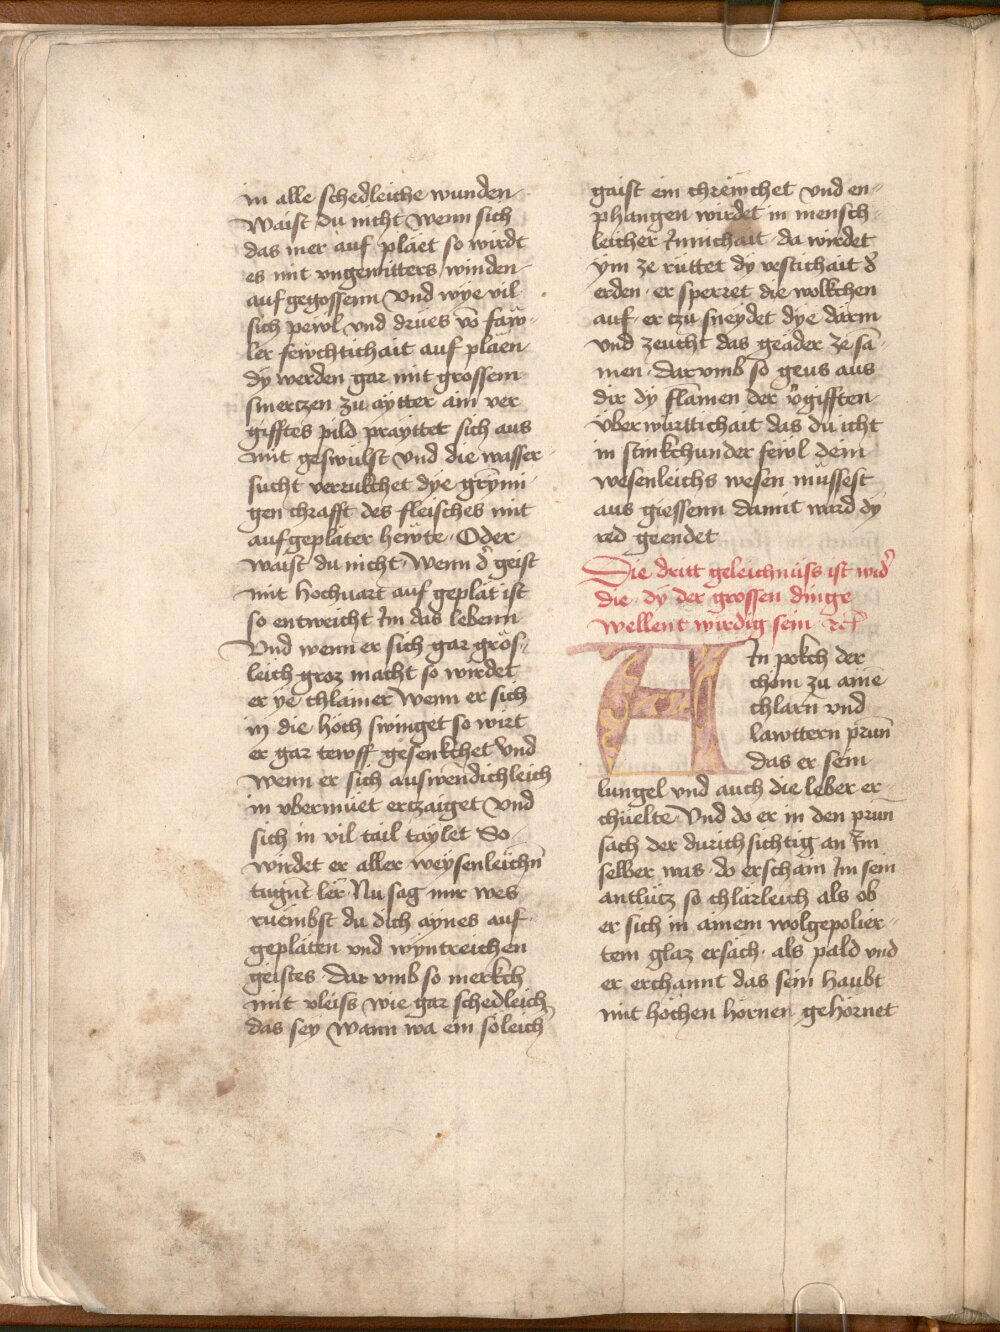 in alle schedleiche wunden·
Waist du nicht wenn sich
das mer auf pläet so wirdt
es mit vngewitters winden·
auf gegossenn Vnd wye vil
sich pewl vnd drües vō fäw-
ler fewchtichait auf pläen·
dy werden gar mit grossem
smertzen zu aytter ain ver
gifftes pild prayttet sich aus
mit geswulst vnd die wasser·
sucht verrukchet dye grymi-
gen chrafft des fleisches mit
aufgepläter hewte· Oder
waist du nicht· Wenn d' geist
mit hochuart auf geplät ist
so entweicht Im das lebenn
Vnd wenn er sich gar gros-
leich groz macht so wirdet
er ye chlainer Wenn er sich
in die hoch swinget so wirt
er gar tewff gesenkchet Vnd
wenn er sich auswendichleich
in vbermuet ertzaiget Vnd
sich in vil tail taylet So
wirdet er aller weysenleichn̄
tugn̄t ler Nu sag mir wes
ruembst du dich aynes auf-
gepläten vnd wyntreichen
geistes· Dar vmb so merkch
mit vleiss wie gar schedleich
das sey Wann wa ein soleich'
gaist ein chrewchet vnd en-
phangen wirdet in mensch-
leicher Innichait· da wirdet
ym ze rüttet dy vestichait d'
erden· er sperret die wolkchen
auf· er tzu sneydet dye därm
vnd zeucht das geäder ze sā-
men· dar vmb so geus aus
dir dy flāmen der v'gifften·
vber württichait das du icht
in stinkchunder fewl dein
wesenleichs wesen müssest
aus giessenn damit ward dy
red geendet
Die dritt geleichnüss ist wid'
die· dy der grossen dinge
wellent wirdig sein ⁊c̄
AIn pokch der
chom zu aine
chlarn̄ vnd
lawttern prun̄
das er sein
lungel vnd auch die leber er-
chüelte· Vnd do er in den prun̄
sach der durichsichtig an Im
selber was· do erscham Im sein
antlütz so chlärleich als ob
er sich in ainem wolgepolier-
tem glaz ersach· als pald vnd
er erchannt das sein haubt
mit höchen hörnen gehörnet